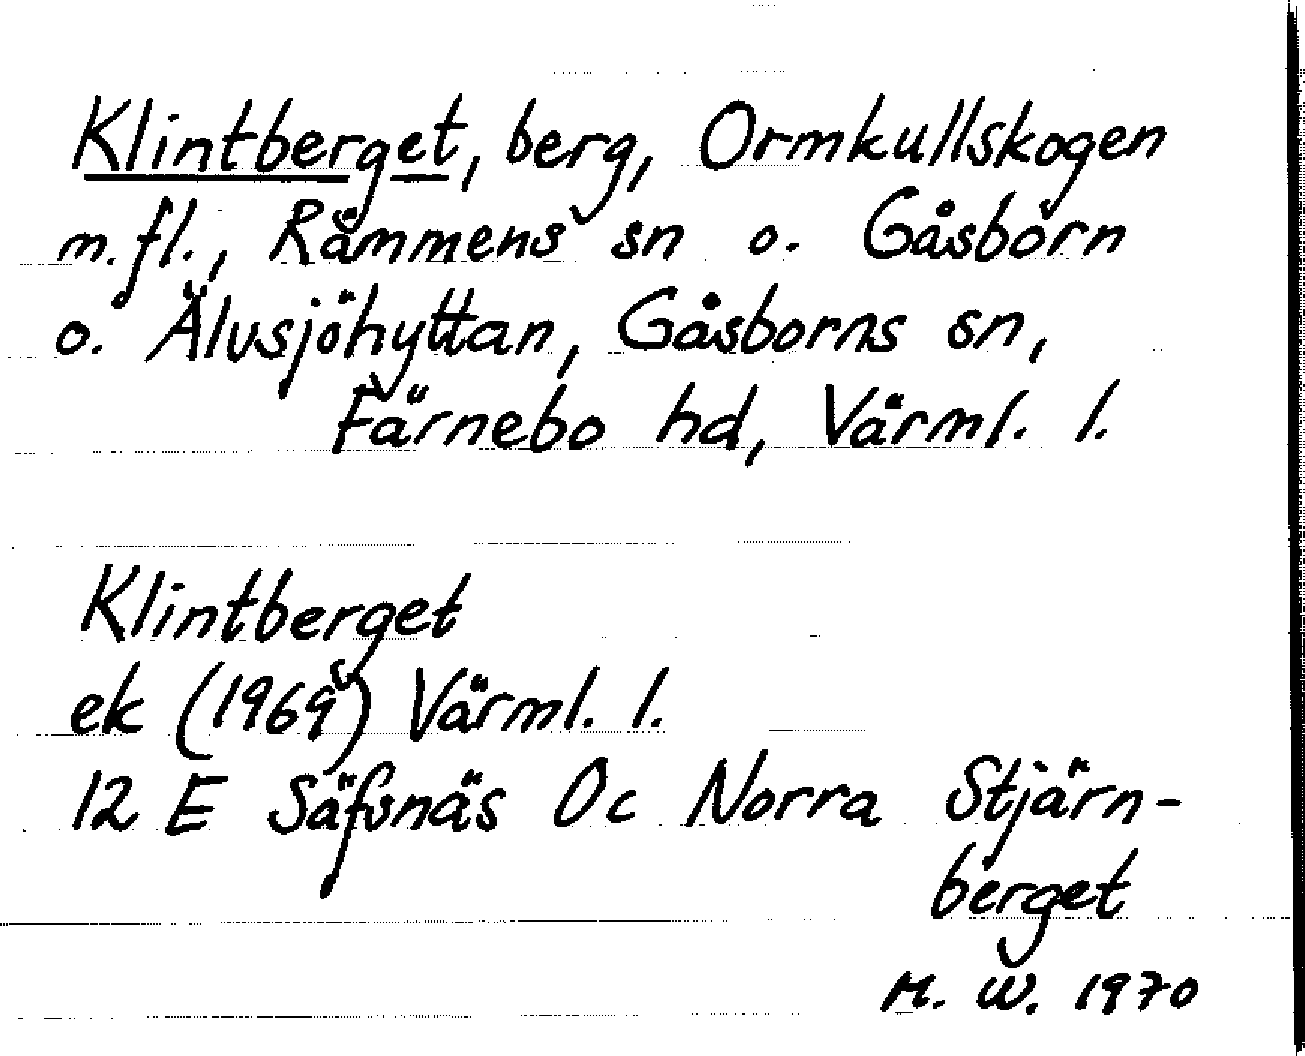 Klintberget, berg, Ormkullskogen
m.fl., Rämmens sn o. Gåsborn
o. Älvsjöhyttan, Gåsborns sn,
Färnebo hd, Värml. l.
Klintberget
ek (1969) Värml. l.
12 E Säfsnäs 0c Norra Stjärn-
berget
M. W. 1970